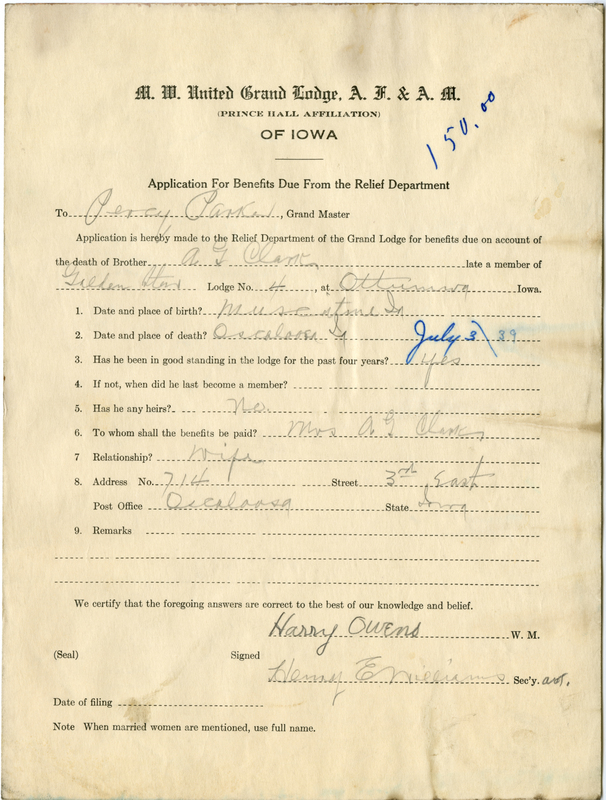 M. W. United Grand Lodge, A. F. & A. M.
(PRINCE HALL AFFILIATION)
OF IOWA
150.00
Application For Benefits Due From the Relief Department
To Percy Parker, Grand Master
Application is hereby made to the Relief Department of the Grand Lodge for benefits due on account of
the death of Brother A G Clark late a member of
Golden Star Lodge No. 4, at Ottumwa Iowa.
1. Date and place of birth? Muscatine Ia
2. Date and place of death? Oscaloosa Ia July 3 \ 39
3. Has he been in good standing in the lodge for the past four years? yes
4. If not, when did he last become a member?
5. Has he any heirs? No.
6. To whom shall the benefits be paid? Mrs A G Clark
7 Relationship? Wife
8. Address No. 714 Street 3rd East
Post Office Oscaloosa State Iowa
9. Remarks
We certify that the foregoing answers are correct to the best of our knowledge and belief.
Harry Owens W. M.
(Seal) Signed
Henry E Williams Sec'y. act.
Date of filing
Note When married women are mentioned, use full name.